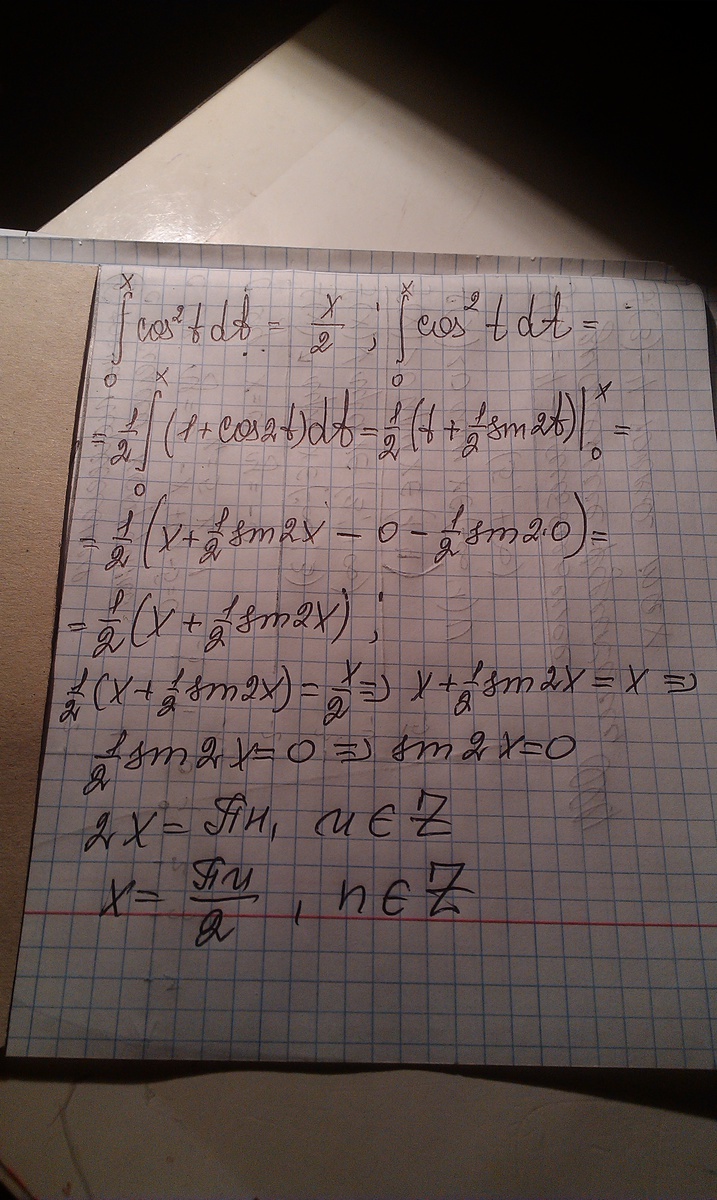 ∫₀ˣ cos² t dt = x/2 ; ∫₀ˣ cos² t dt =
= 1/2 ∫₀ˣ (1 + cos2t) dt = 1/2 (t + 1/2 sin 2t) |₀ˣ =
= 1/2 (x + 1/2 sin 2x − 0 − 1/2 sin 2·0) =
= 1/2 (x + 1/2 sin 2x) ;
1/2 (x + 1/2 sin 2x) = x/2 ⇒ x + 1/2 sin 2x = x ⇒
1/2 sin 2x = 0 ⇒ sin 2x = 0
2x = πn, n ∈ Z
x = πn/2 , n ∈ Z